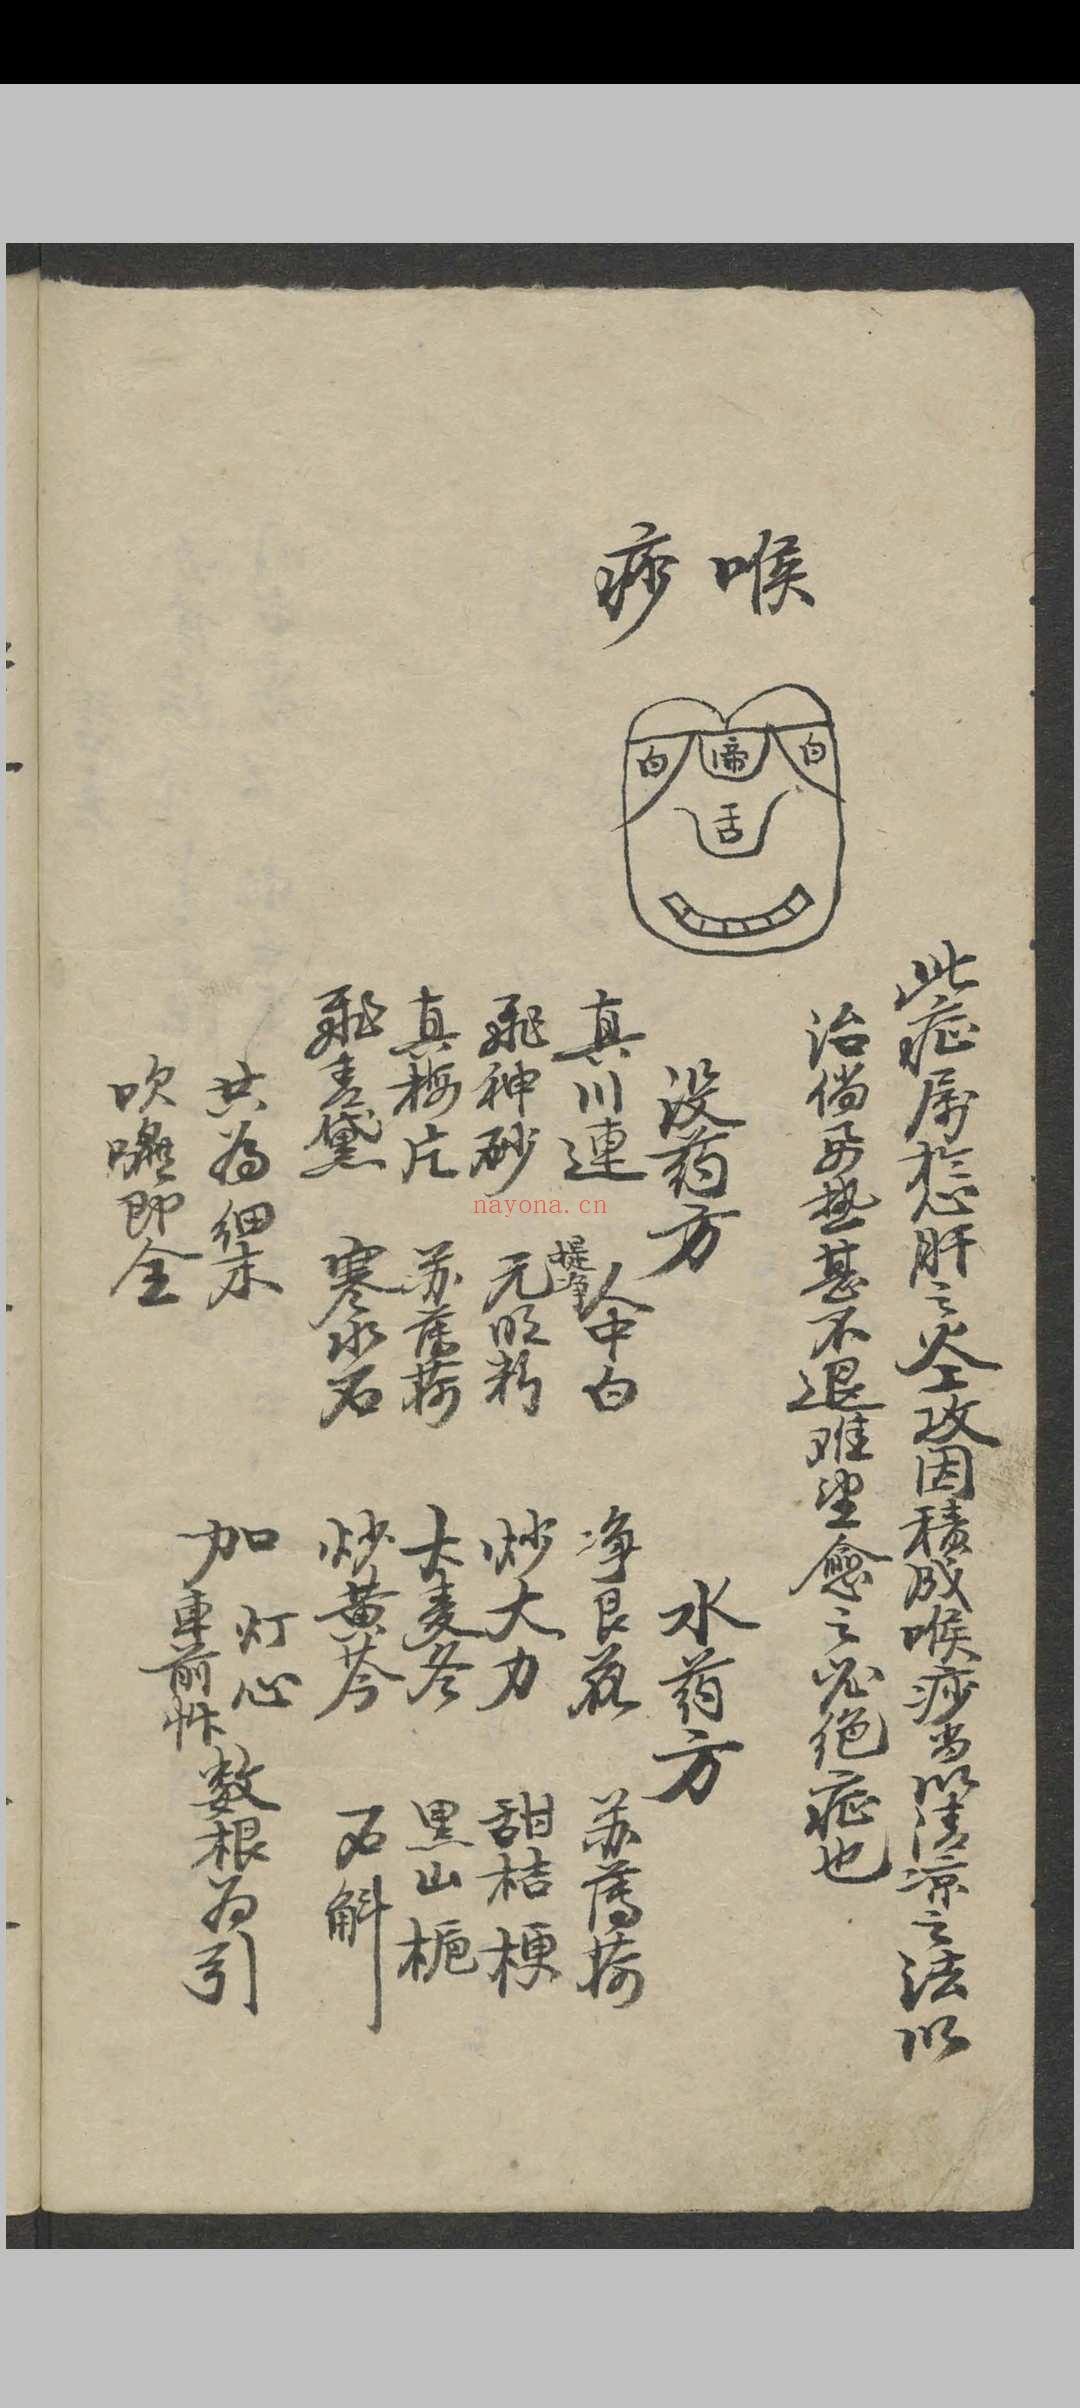 喉痧
白 啼 白
舌
此症属於心肝之火上攻因積成喉痧当以清凉之法以
治倘若热甚不退难望愈之必绝症也
没药方
真川連 提净人中白
飛神砂 元明粉
真梅片 苏薄荷
飛青黛 寒水石
共为细末
吹嚨即全
水药方
净艮花 苏薄荷
炒大力 甜桔梗
大麦冬 黑山栀
炒黄芩 石斛
加 灯心 車前 数根为引
nayona.cn